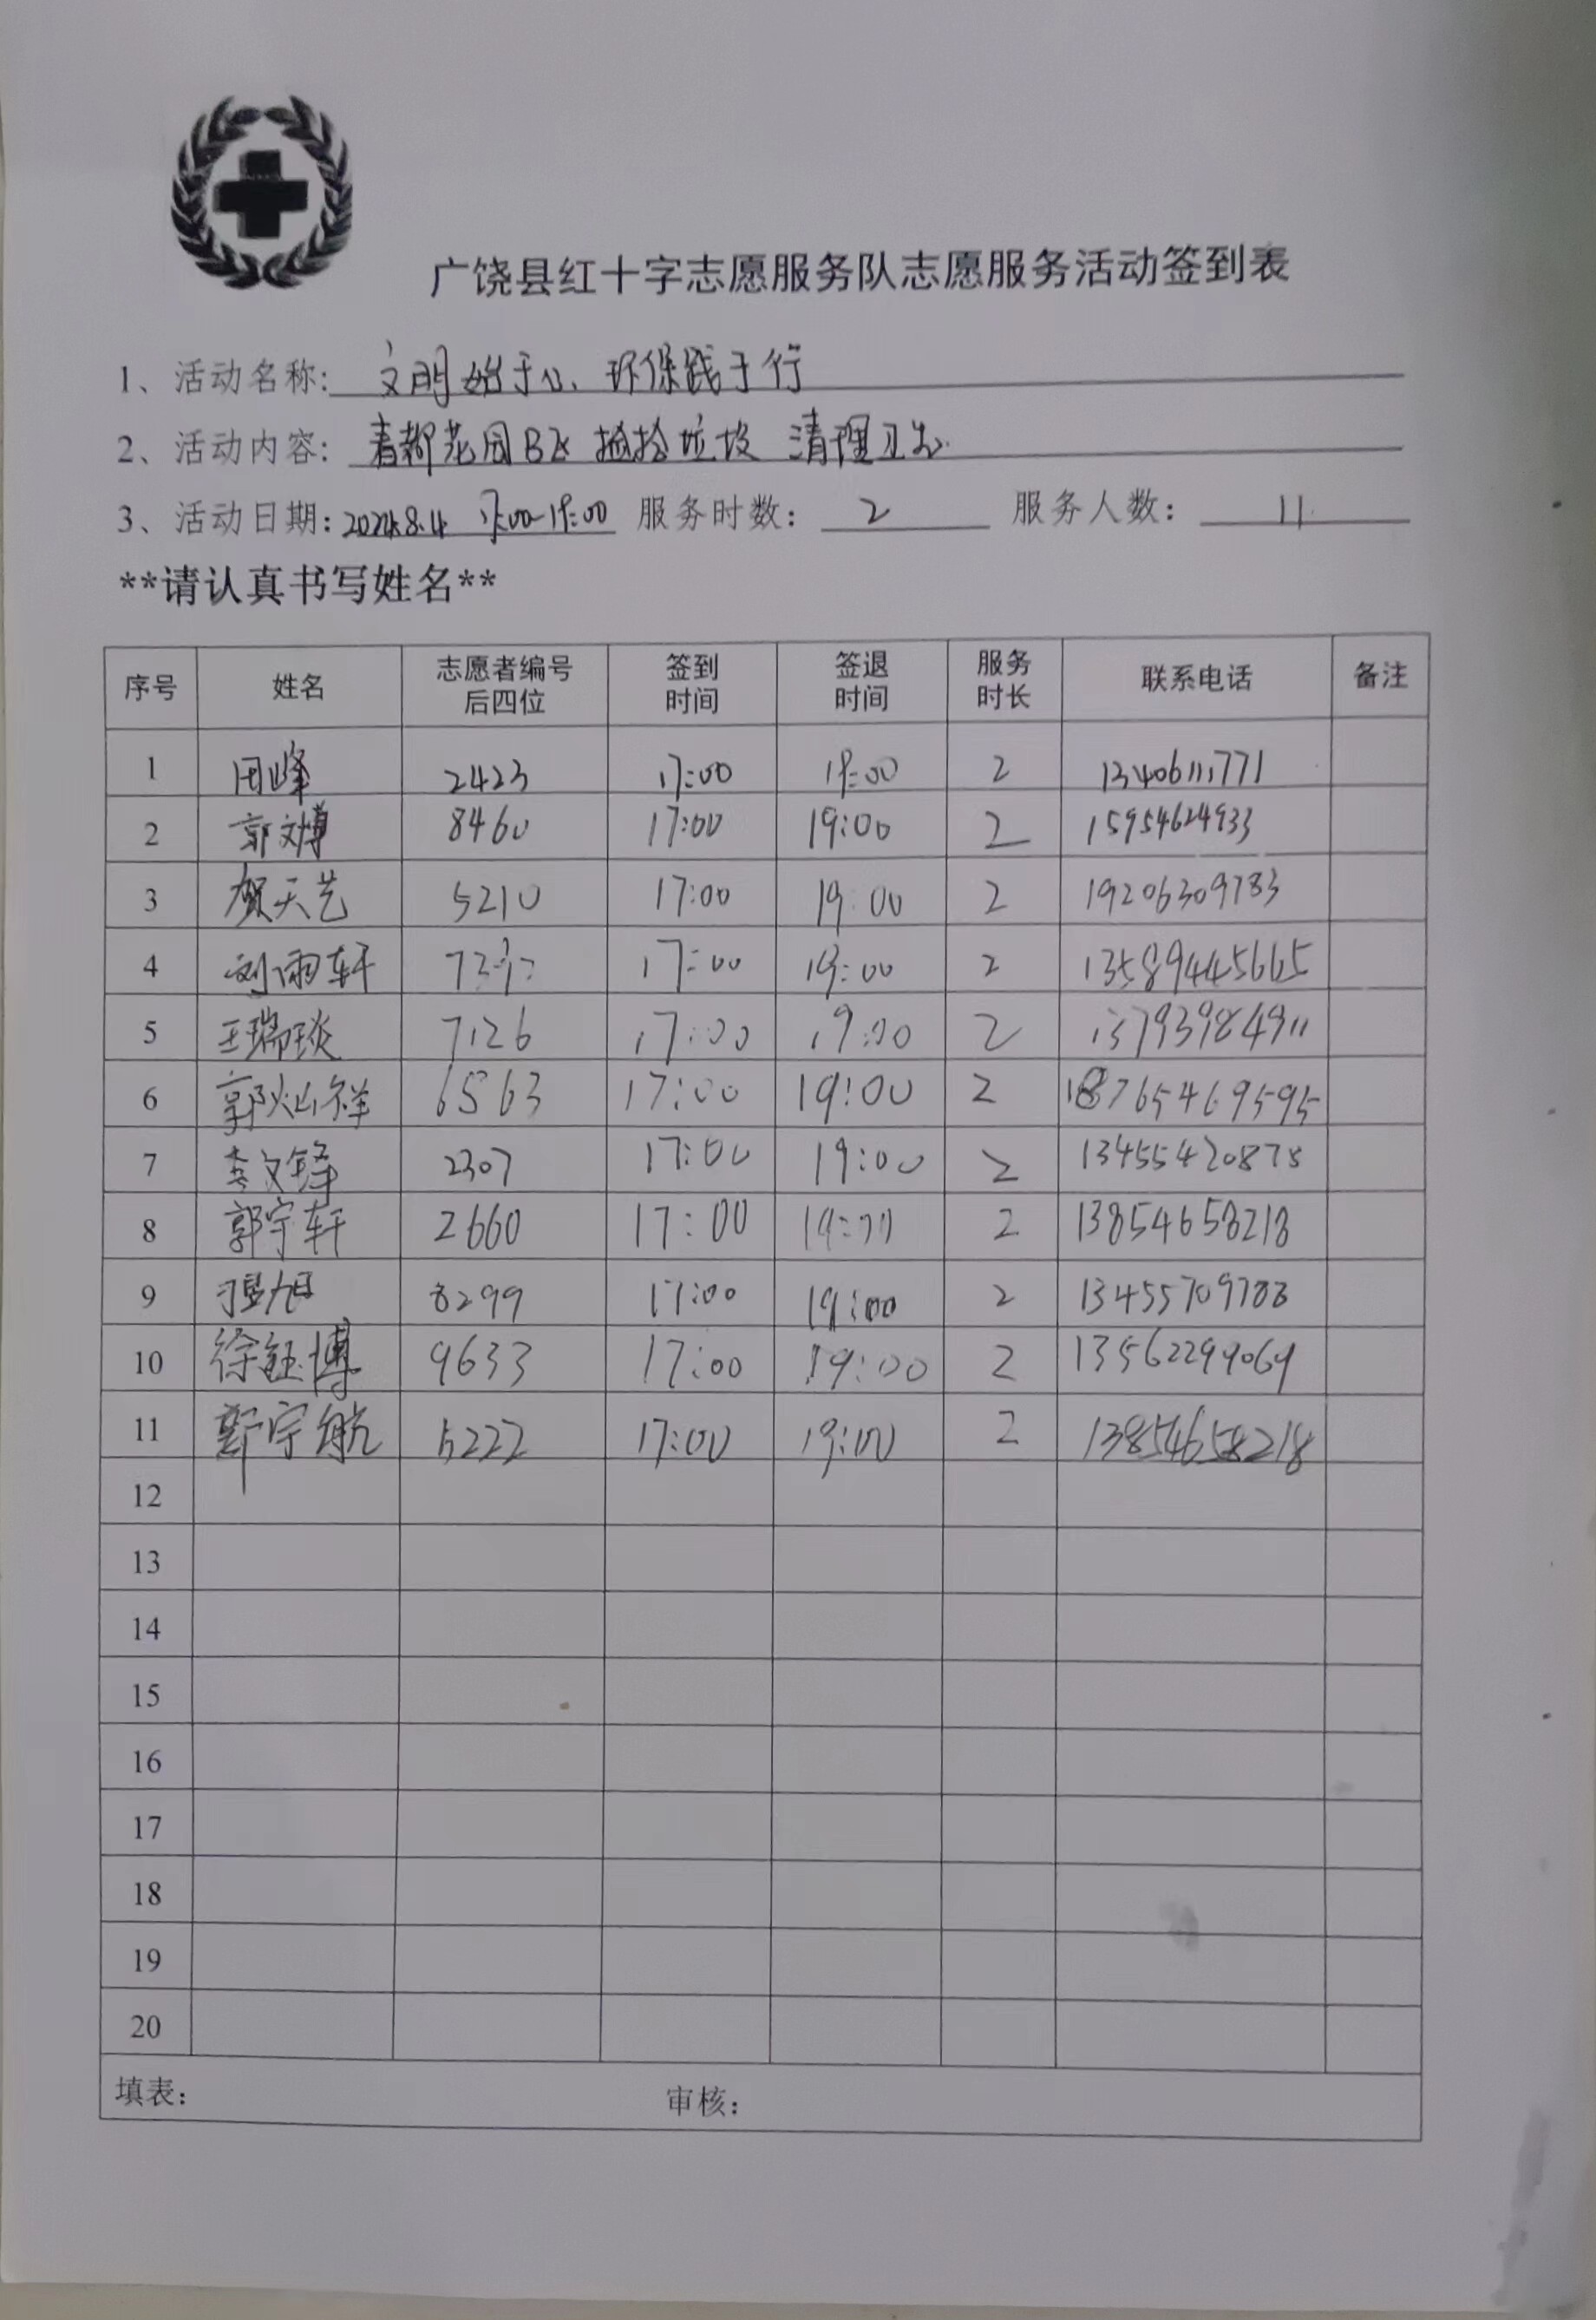 广饶县红十字志愿服务队志愿服务活动签到表
1、活动名称: 文明始于心、环保践于行
2、活动内容: 春都花园B区 捡拾垃圾 清理卫生
3、活动日期: 2024.8.4 17:00-19:00 服务时数: 2 服务人数: 11
**请认真书写姓名**
序号 姓名 志愿者编号后四位 签到时间 签退时间 服务时长 联系电话 备注
1 田峰 2423 17:00 19:00 2 13406111771
2 郭文博 8460 17:00 19:00 2 15954624933
3 贺天艺 5210 17:00 19:00 2 19206309783
4 刘雨轩 17:00 19:00 2 13589445665
5 王瑞琰 7126 17:00 19:00 2 13793984911
6 郭灿祥 6563 17:00 19:00 2 18765469595
7 李文锋 2307 17:00 19:00 2 13455420878
8 郭宇轩 2660 17:00 19:00 2 13854658218
9 旭 8299 17:00 19:00 2 13455709788
10 徐钰博 9633 17:00 19:00 2 13562299069
11 宇航 5222 17:00 19:00 2 13854658218
12
13
14
15
16
17
18
19
20
填表: 审核: